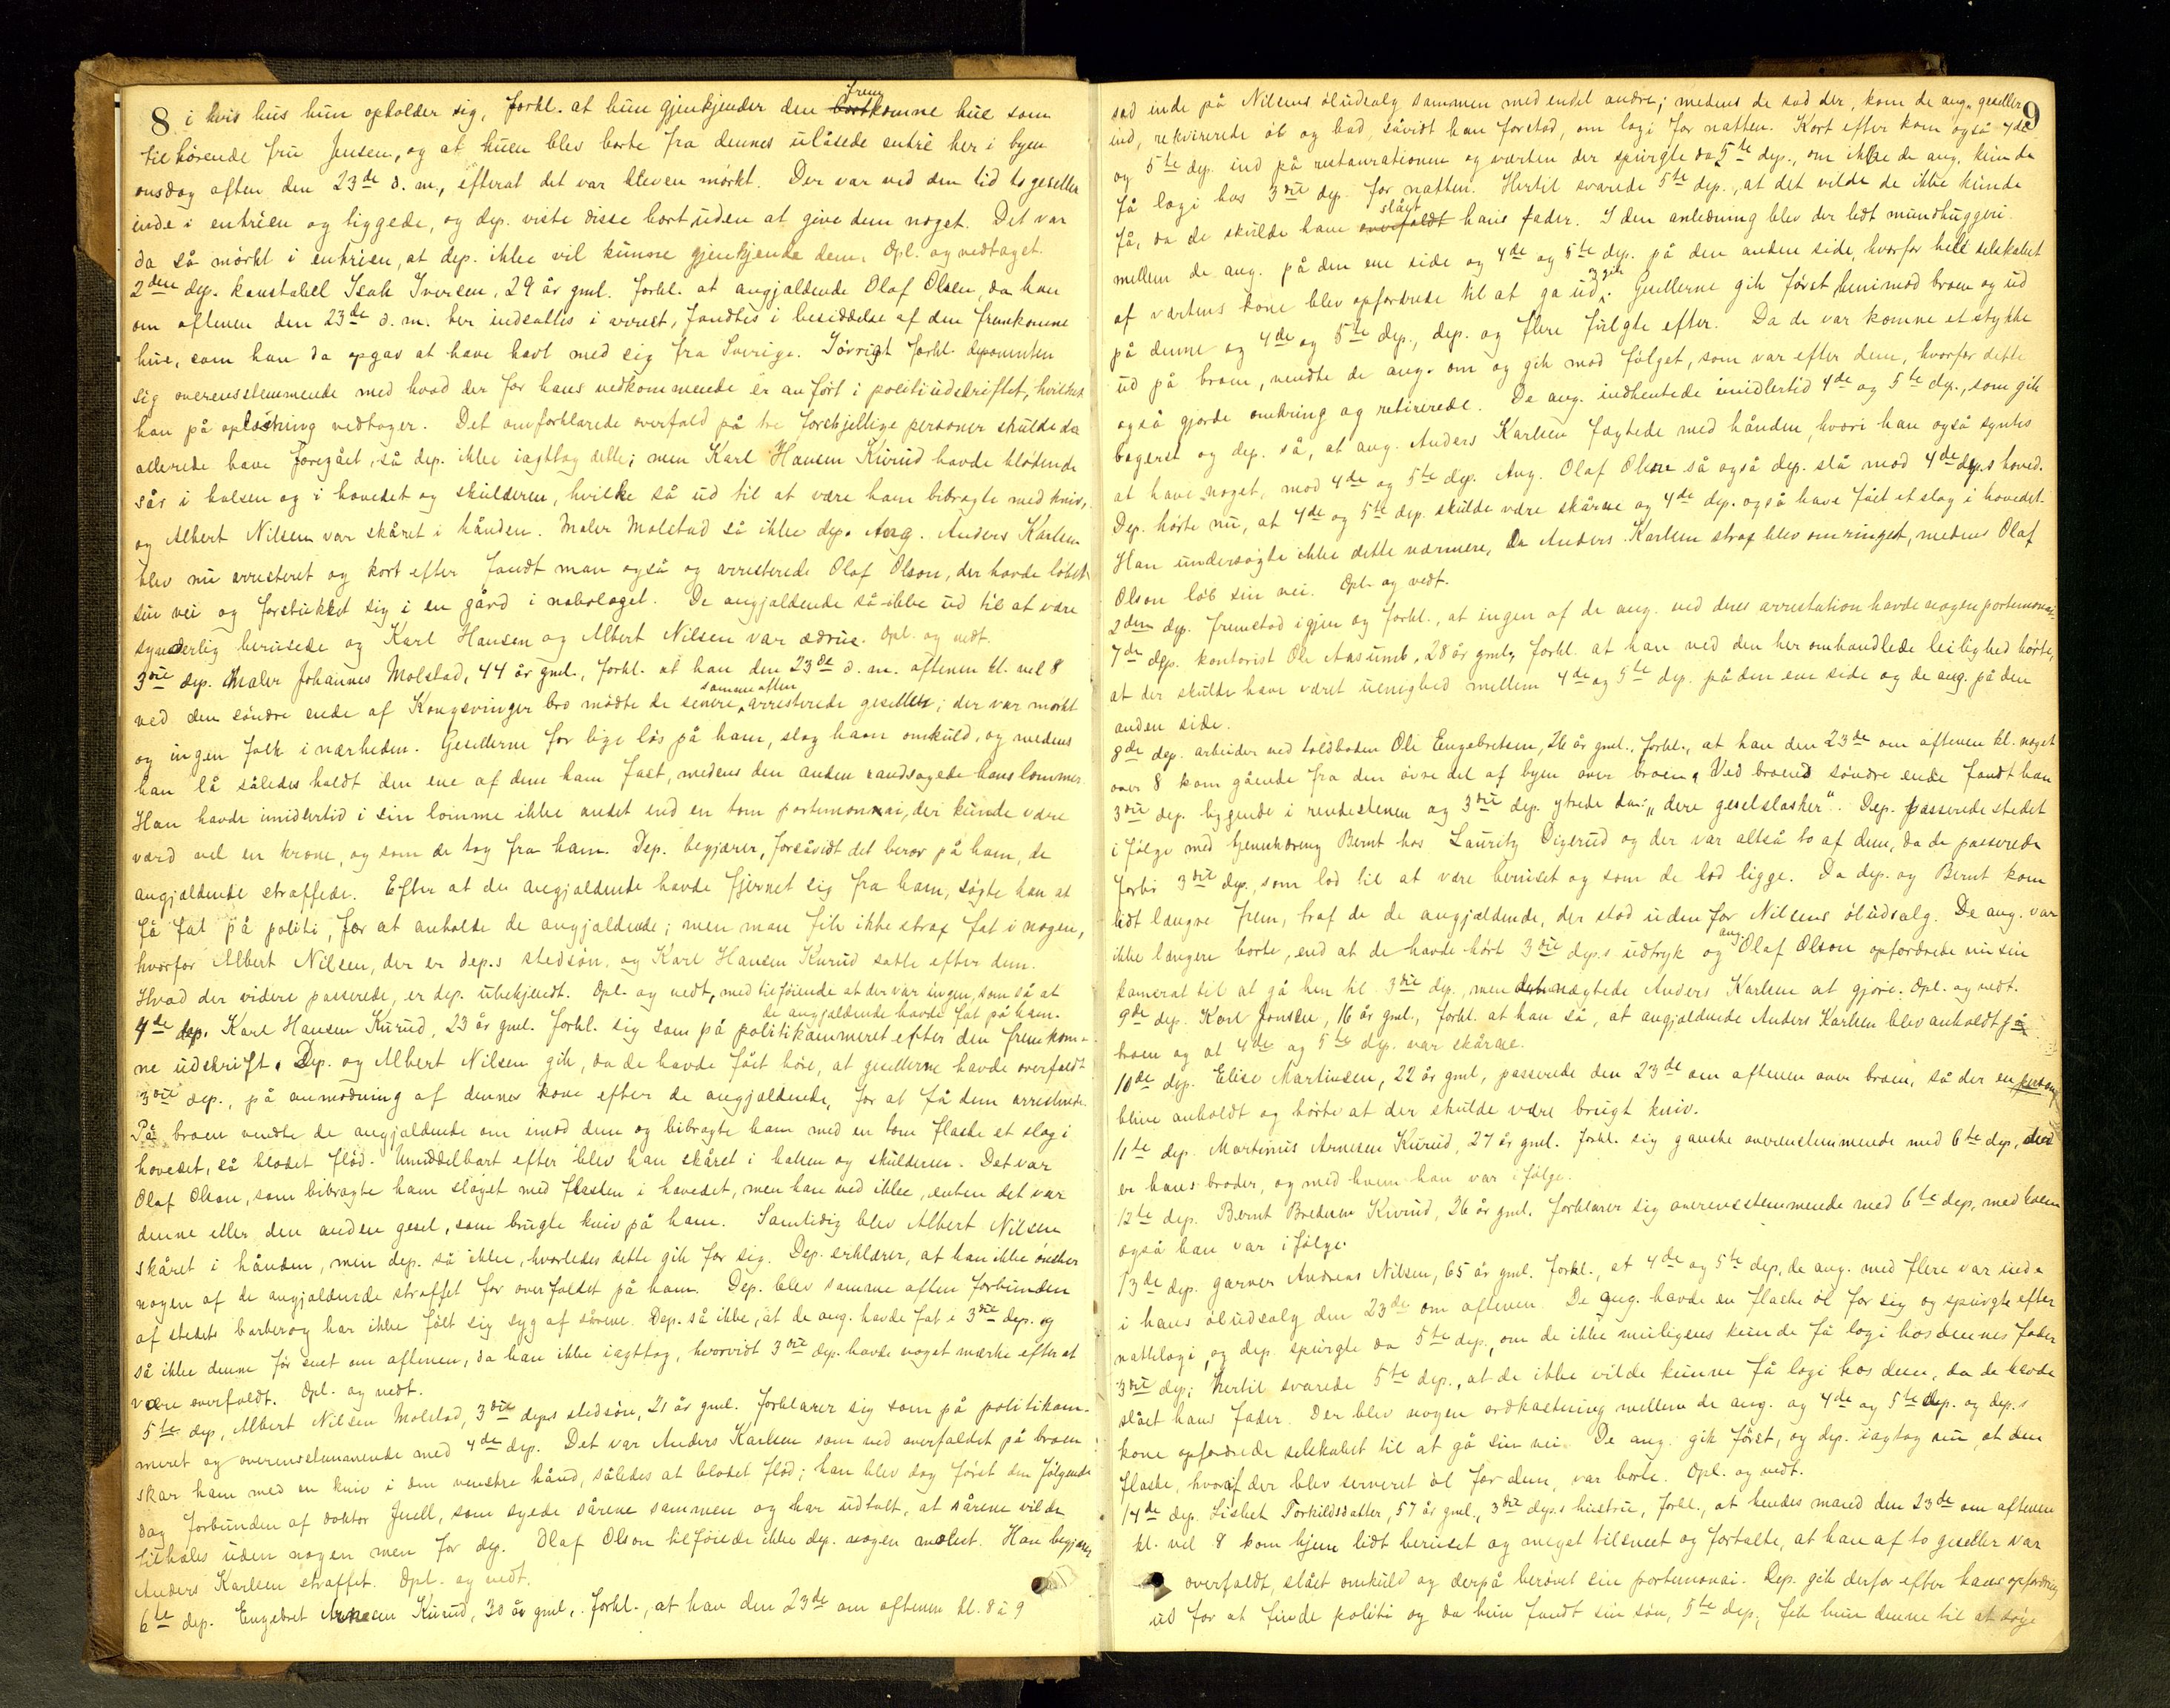 8
i hvis hus hun opholder sig, forkl. at hun gjenkjender den bortkomne hue som
frem
tilhörende fru Jensen, og at huen blev borte fra dennes ulåsede entré her i byen
onsdag aften den 23de d. m., efterat det var bleven mörkt. Der var ved den tid to geseller
inde i entréen og tiggede, og dep. viste disse bort uden at give dem noget. Det var
da så mörkt i entréen, at dep. ikke vil kunne gjenkjende dem. Opl. og vedtaget.
2den dep. konstabel Isak Iversen, 29 år gml. forkl. at angjældende Olof Olson, da han
om aftenen den 23de d. m. her indsattes i arrest, fandtes i besiddelse af den fremkomne
hue, som han da opgav at have havt med sig fra Sverige. Iövrigt forkl. deponenten
sig overensstemmende med hvad der for hans vedkommende er anfört i politiudskriftet, hvilket
han på oplæsning vedtager. Det omforklarede overfald på tre forskjellige personer skulde da
allerede have foregået, så dep. ikke iagttog dette; men Karl Hansen Kurud havde blödende
sår i halsen og i hovedet og skulderen, hvilke så ud til at være ham bibragte med kniv,
og Albert Nilsen var skåret i hånden. Maler Molstad så ikke dep. Ang. Anders Karlsen
blev nu arresteret og kort efter fandt man også og arresterede Olof Olson, der havde löbet
sin vei og forstukket sig i en gård i nabolaget. De angjældende så ikke ud til at være
synderlig berusede og Karl Hansen og Albert Nilsen var ædrue. Opl. og vedt.
3die dep. Maler Johannes Molstad, 44 år gml., forkl. at han den 23de d. m. aftenen kl. vel 8
samme aften
ved den söndre ende af Kongsvinger bro mödte de senere arresterede geseller; der var mörkt
og ingen folk i nærheden. Gesellerne för lige lös på ham, slog ham omkuld, og medens
han lå således holdt den ene af dem ham fast, medens den anden randsagede hans lommer.
Han havde imidlertid i sin lomme ikke andet end en tom portemonnai, der kunde være
værd vel en krone, og som de tog fra ham. Dep. begjærer, forsåvidt det beror på ham, de
angjældende straffede. Efter at de angjældende havde fjernet sig fra ham, sögte han at
få fat på politi, for at anholde de angjældende; men man fik ikke strax fat i nogen,
hvorfor Albert Nilsen, der er dep.s stedsön, og Karl Hansen Kurud satte efter dem.
Hvad der videre passerede, er dep. ubekjendt. Opl. og vedt, med tilföiende at der var ingen, som så at
de angjældende havde fat på ham.
4de dep. Karl Hansen Kurud, 23 år gml. forkl. sig som på politikammeret efter den fremkom-
ne udskrift. Dep. og Albert Nilsen gik, da de havde fået höre, at gesellerne havde overfaldt
3die dep., på anmodning af dennes kone efter de angjældende, for at få dem arresterede.
På broen vendte de angjældende om imod dem og bibragte ham med en tom flaske et slag i
hovedet, så blodet flöd. Umiddelbart efter blev han skåret i halsen og skulderen. Det var
Olof Olson, som bibragte ham slaget med flasken i hovedet, men han ved ikke, enten det var
denne eller den anden gesel, som brugte kniv på ham. Samtidig blev Albert Nilsen
skåret i hånden, men dep. så ikke, hvorledes dette gik for sig. Dep. erklærer, at han ikke önsker
nogen af de angjældende straffet for overfaldet på ham. Dep. blev samme aften forbunden
af stedets barber og har ikke fölt sig syg af sårene. Dep. så ikke, at de ang. havde fat i 3die dep. og
så ikke denne för sent om aftenen, da han ikke iagttog, hvorvidt 3die dep. havde noget mærke efter at
være overfaldt. Opl. og vedt.
5te dep, Albert Nilsen Molstad, 3die dep.s stedsön, 21 år gml. forklarer sig som på politikam-
meret og overensstemmende med 4de dep. Det var Anders Karlsen som ved overfaldet på broen
skar ham med en kniv i den venstre hånd, således at blodet flöd; han blev dog först den fölgende
dag forbunden af doktor Juell, som syede sårene sammen og har udtalt, at sårene vilde
tilheles uden nogen men for dep. Olof Olson tilföiede ikke dep. nogen anelast. Han begjærer
Anders Karlsen straffet. Opl. og vedt.
6te dep. Engebret Arnesen Kurud, 30 år gml., forkl., at han den 23de om aftenen kl. 8 à 9
9
sad inde på Nilsens öludsalg sammen med endel andre; medens de sad der, kom de ang. geseller
ind, rekvirerede öl og bad, såvidt han forstod, om logi for natten. Kort efter kom også 4de
og 5te dep. ind på restaurationen og værten der spurgte da 5te dep., om ikke de ang. kunde
få logi hos 3die dep. for natten. Hertil svarede 5te dep., at det vilde de ikke kunde
slået
få, da de skulde have overfaldt hans fader. I den anledning blev der lidt mundhuggeri
mellem de ang. på den ene side og 4de og 5te dep. på den anden side, hvorfor hele selskabet
af værtens kone blev opfordrede til at gå ud. Gesellerne gik först henimod broen og ud
på denne og 4de og 5te dep., dep. og flere fulgte efter. Da de var komne et stykke
ud på broen, vendte de ang. om og gik mod fölget, som var efter dem, hvorfor dette
også gjorde omkring og retirerede. De ang. indhentede imidlertid 4de og 5te dep., som gik
bagerst og dep. så, at ang. Anders Karlsen fægtede med hånden, hvori han også syntes
at have noget, mod 4de og 5te dep. Ang. Olof Olson så også dep. slå mod 4de dep.s hoved.
Dep. hörte nu, at 4de og 5te dep. skulde være skårne og 4de dep. også have fået et slag i hovedet.
Han undersögte ikke dette nærmere, da Anders Karlsen strax blev omringet, medens Olof
Olson löb sin vei. Opl. og vedt.
2den dep. fremstod igjen og forkl., at ingen af de ang. ved deres arrestation havde nogen portemonnai.
7de dep. kontorist Ole Aasumb, 28 år gml, forkl. at han ved den her omhandlede leilighed hörte,
at der skulde have været uenighed mellem 4de og 5te dep. på den ene side og de ang. på den
anden side.
8de dep. arbeider ved toldboden Ole Engebretsen, 26 år gml., forkl., at han den 23de om aftenen kl. noget
over 8 kom gående fra den övre del af byen over broen. Ved broens söndre ende fandt han
3die dep. liggende i rendestenen og 3die dep. ytrede da: „dere geselslasker“. Dep. passerede stedet
i fölge med tjenestedreng Bernt hos Lauritz Digerud og der var altså to af dem, da de passerede
forbi 3die dep., som lod til at være beruset og som de lod ligge. Da dep. og Bernt kom
lidt længre frem, traf de de angjældende, der stod uden for Nilsens öludsalg. De ang. var
ang.
ikke længere borte, end at de havde hört 3die dep.s udtryk og Olof Olson opfordrede nu sin
kamerat til at gå hen til 3die dep., men det nægtede Anders Karlsen at gjöre. Opl. og vedt.
9de dep. Karl Jonsen, 16 år gml., forkl. at han så, at angjældende Anders Karlsen blev anholdt på
broen og at 4de og 5te dep. var skårne.
10de dep. Elise Martinsen, 22 år gml, passerede den 23de om aftenen over broen, så der en person
blive anholdt og hörte at der skulde være brugt kniv.
11te dep. Martinus Arnesen Kurud, 27 år gml. forkl. sig ganske overensstemmende med 6te dep, der
er hans broder, og med hvem han var i fölge.
12te dep. Bernt Bredesen Kurud, 26 år gml. forklarer sig overensstemmende med 6te dep, med hvem
også han var i fölge.
13de dep. garver Andreas Nilsen, 65 år gml. forkl., at 4de og 5te dep, de ang. med flere var inde
i hans öludsalg den 23de om aftenen. De ang. havde en flaske öl for sig og spurgte efter
nattelogi, og dep. spurgte da 5te dep., om de ikke muligens kunde få logi hos dennes fader
3die dep; hertil svarede 5te dep., at de ikke vilde kunne få logi hos dem, da de havde
slået hans fader. Der blev nogen ordkastning mellem de ang. og 4de og 5te dep. og dep.s
kone opfordrede selskabet til at gå sin vei. De ang. gik först, og dep. iagtog nu, at den
flaske, hvoraf der blev serveret öl for dem, var borte. Opl. og vedt.
14de dep. Lisbet Torkildsdatter, 57 år gml., 3die dep.s hustru, forkl., at hendes mand den 23de om aftenen
kl. vel 8 kom hjem lidt beruset og meget tilsneet og fortalte, at han af to geseller var
overfaldt, slået omkuld og derpå berövet sin portemonai. Dep. gik derfor efter hans opfordring
ud for at finde politi og da hun fandt sin sön, 5te dep., fik hun denne til at söge